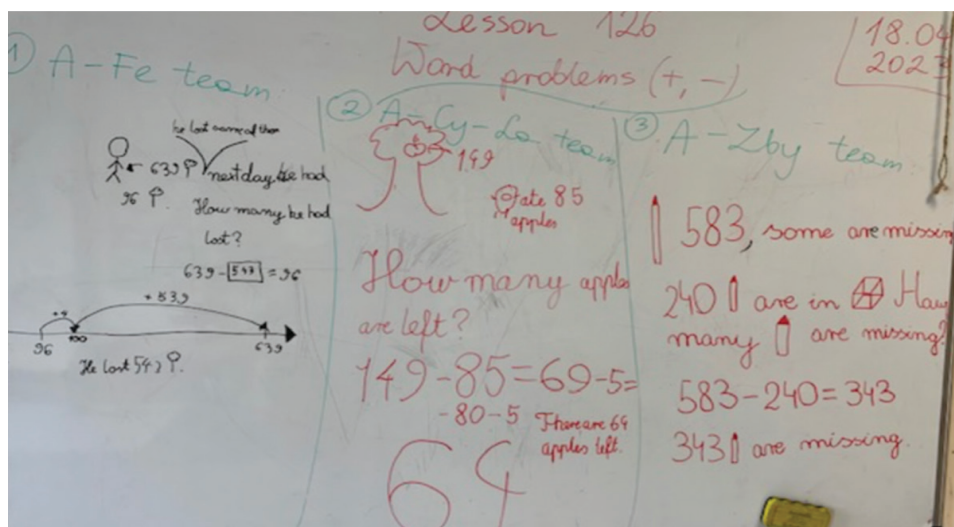 Lesson 126
Word problems (+, -)
18.04
2023
1) A-Fe team
he lost some of them
639
next day he had
96
How many he had
lost?
639-543=96
+4
+539
96
100
639
He lost 543
2) A-Cy-La team
149
ate 85
apples
How many apples
are left?
149-85=69-5=
-80-5
There are 64
apples left.
64
3) A-Zby team
583, some are missing
240 are in How
many are missing?
583-240=343
343 are missing.